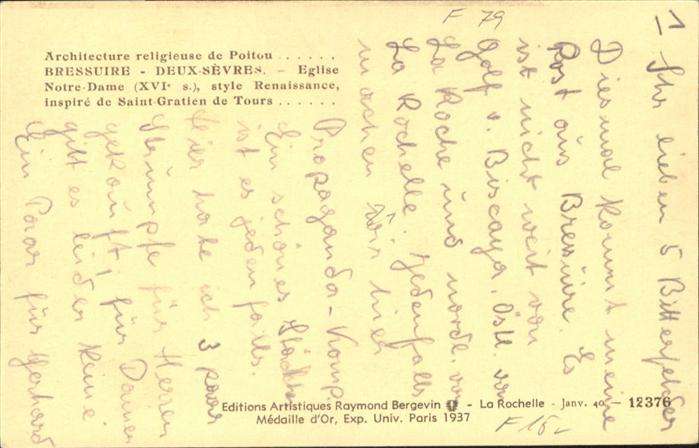 F 79
Architecture religieuse de Poitou . . . . . .
BRESSUIRE - DEUX-SÈVRES. - Eglise
Notre-Dame (XVIᵉ s.), style Renaissance,
inspiré de Saint-Gratien de Tours . . . . . .
1
Ihr lieben 5 Bitterfelder
Diesmal kommt meine
Post aus Bressuire. Es
ist nicht weit von
Golf v. Biscaya. Östl. von
La Roche und nordl. von
La Rochelle. Jedenfalls
machen wir hier
Propaganda-Komp.
Ein schönes Städtchen
ist es jedenfalls.
Hier habe ich 3 paar
Strümpfe für Herren
gekauft, für Damen
gibt es leider keine
Ein Paar für Gerhard
Editions Artistiques Raymond Bergevin - La Rochelle - Janv. 40 - 12376
Médaille d'Or, Exp. Univ. Paris 1937
F 15.-